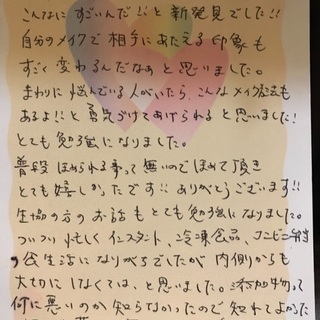 こんなに すごいんだ!!と 新発見でした!!
自分のメイクで 相手にあたえる 印象も
すごく 変わるんだなぁと 思いました。
まわりに 悩んでいる 人がいたら、こんな メイク法も
あるよ!!と 勇気づけてあげられると 思いました!
とても 勉強になりました。
普段 ほめられる事って 無いので ほめて 頂き
とても 嬉しかったです!! ありがとうございます!!
生協の方の お話も とても 勉強になりました。
ついつい 忙しく インスタント、冷凍食品、コンビニ弁当
食生活に なりがちでしたが 内側からも
大切に しなくては、と 思いました。添加物って
何に 悪いのか 知らなかったので 知れて よかった